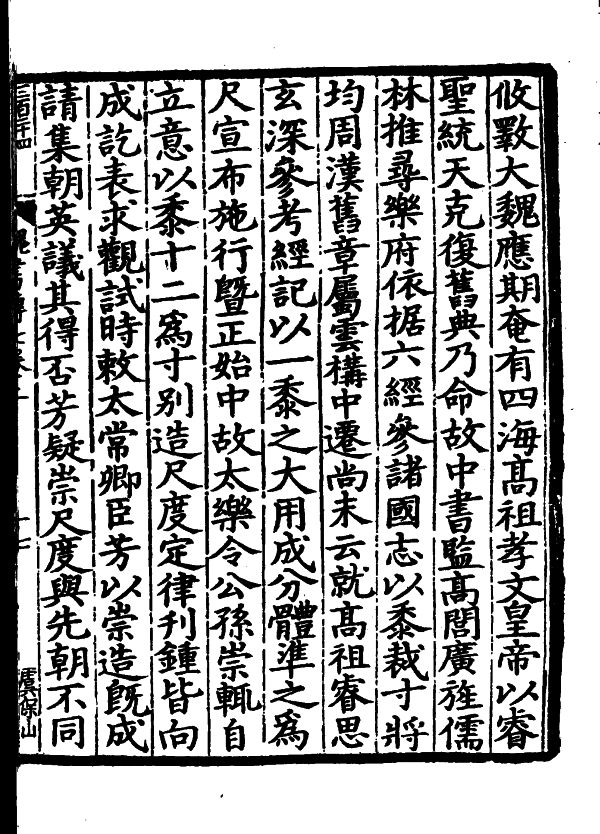 攸斁大魏應期奄有四海高祖孝文皇帝以睿
聖統天克復舊典乃命故中書監高閭廣旌儒
林推尋樂府依据六經參諸國志以黍裁寸將
均周漢舊章屬雲構中遷尚未云就高祖睿思
玄深參考經記以一黍之大用成分體準之爲
尺宣布施行曁正始中故太樂令公孫崇輒自
立意以黍十二爲寸别造尺度定律刋鍾皆向
成訖表求觀試時敕太常卿臣芳以崇造旣成
請集朝英議其得否芳疑崇尺度與先朝不同